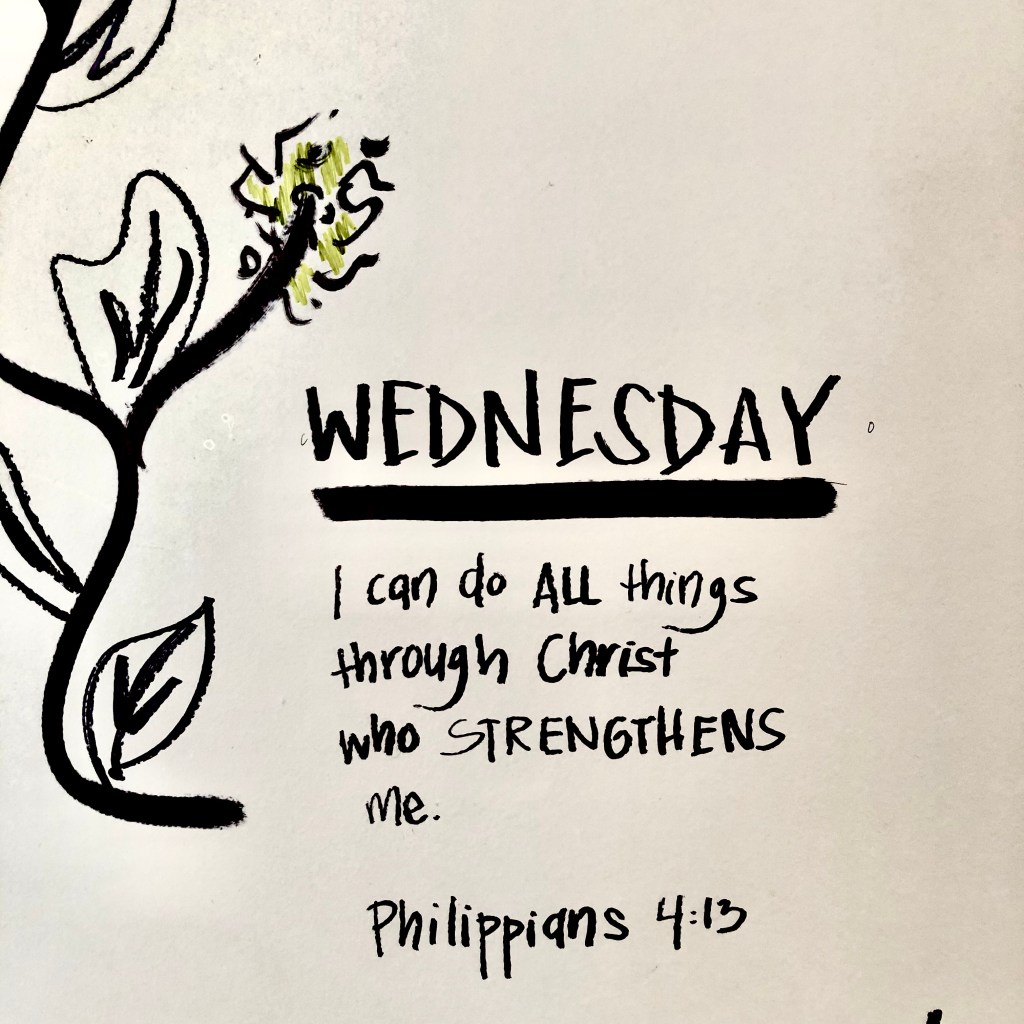 WEDNESDAY
I can do ALL things
through Christ
who STRENGTHENS
me.
Philippians 4:13